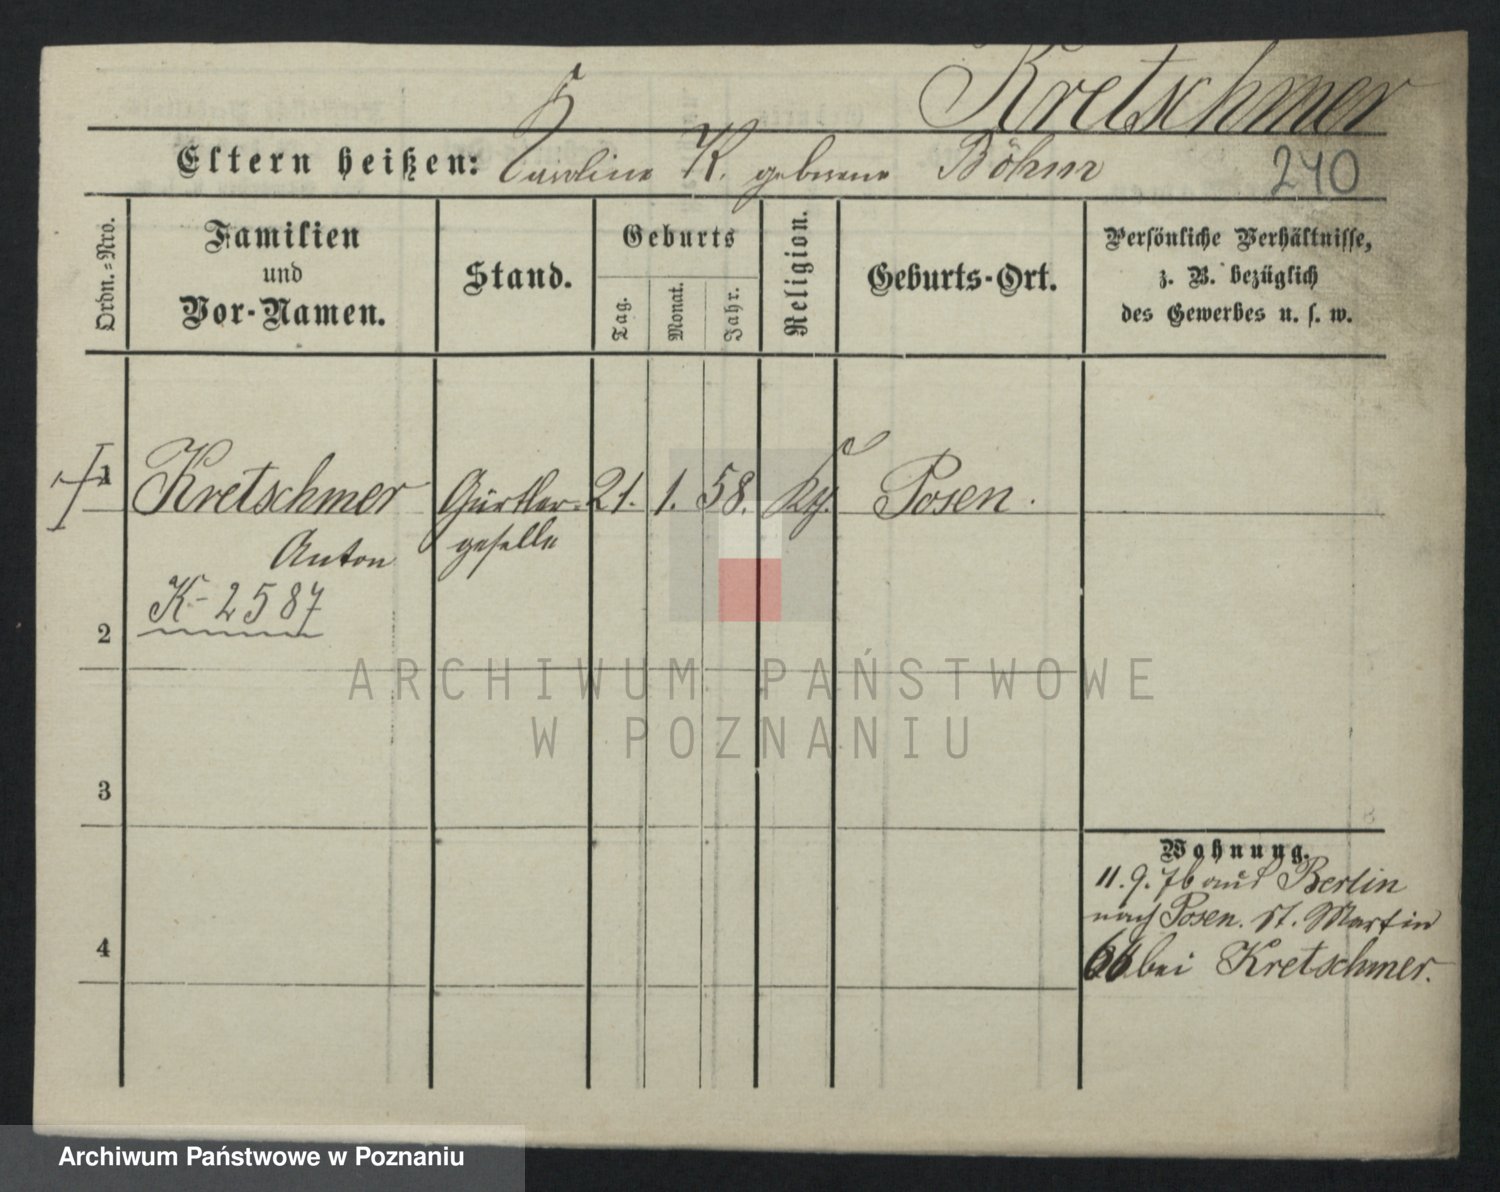 Kretschmer
Eltern heißen: Caroline K. geborene Böhm
240
Ordn.=Nro.
Familien
und
Vor-Namen.
Stand.
Geburts
Tag.
Monat.
Jahr.
Religion.
Geburts-Ort.
Persönliche Verhältnisse,
z. B. bezüglich
des Gewerbes u. s. w.
1
Kretschmer Gürtler= 21. 1. 58. Posen.
Anton geselle
K-2587
2
3
4
Wohnung.
11. 9. 76 aus Berlin
nach Posen. St. Martin
bei Kretschmer.
ARCHIWUM PAŃSTWOWE
W POZNANIU
Archiwum Państwowe w Poznaniu